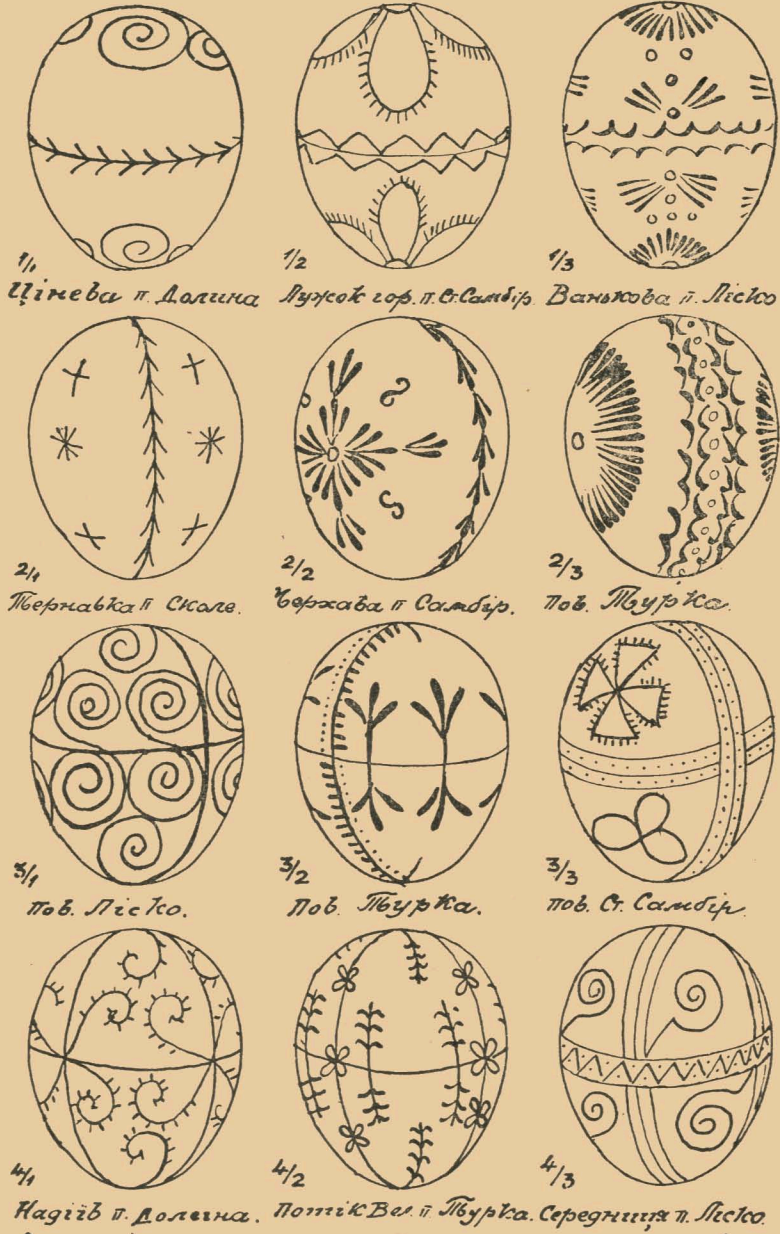 1/1
Ціпева п. Долина
1/2
Лужок гор. п. Ст. Самбір.
1/3
Ванькова п. Ліско
2/1
Тернавка п Сколе.
2/2
Черхава п Самбір.
2/3
пов. Турка.
3/1
пов. Ліско.
3/2
Пов. Турка.
3/3
пов. Ст. Самбір
4/1
Надіїв п. Долина.
4/2
Потік Вел. п Турка.
4/3
Середниця п. Ліско.